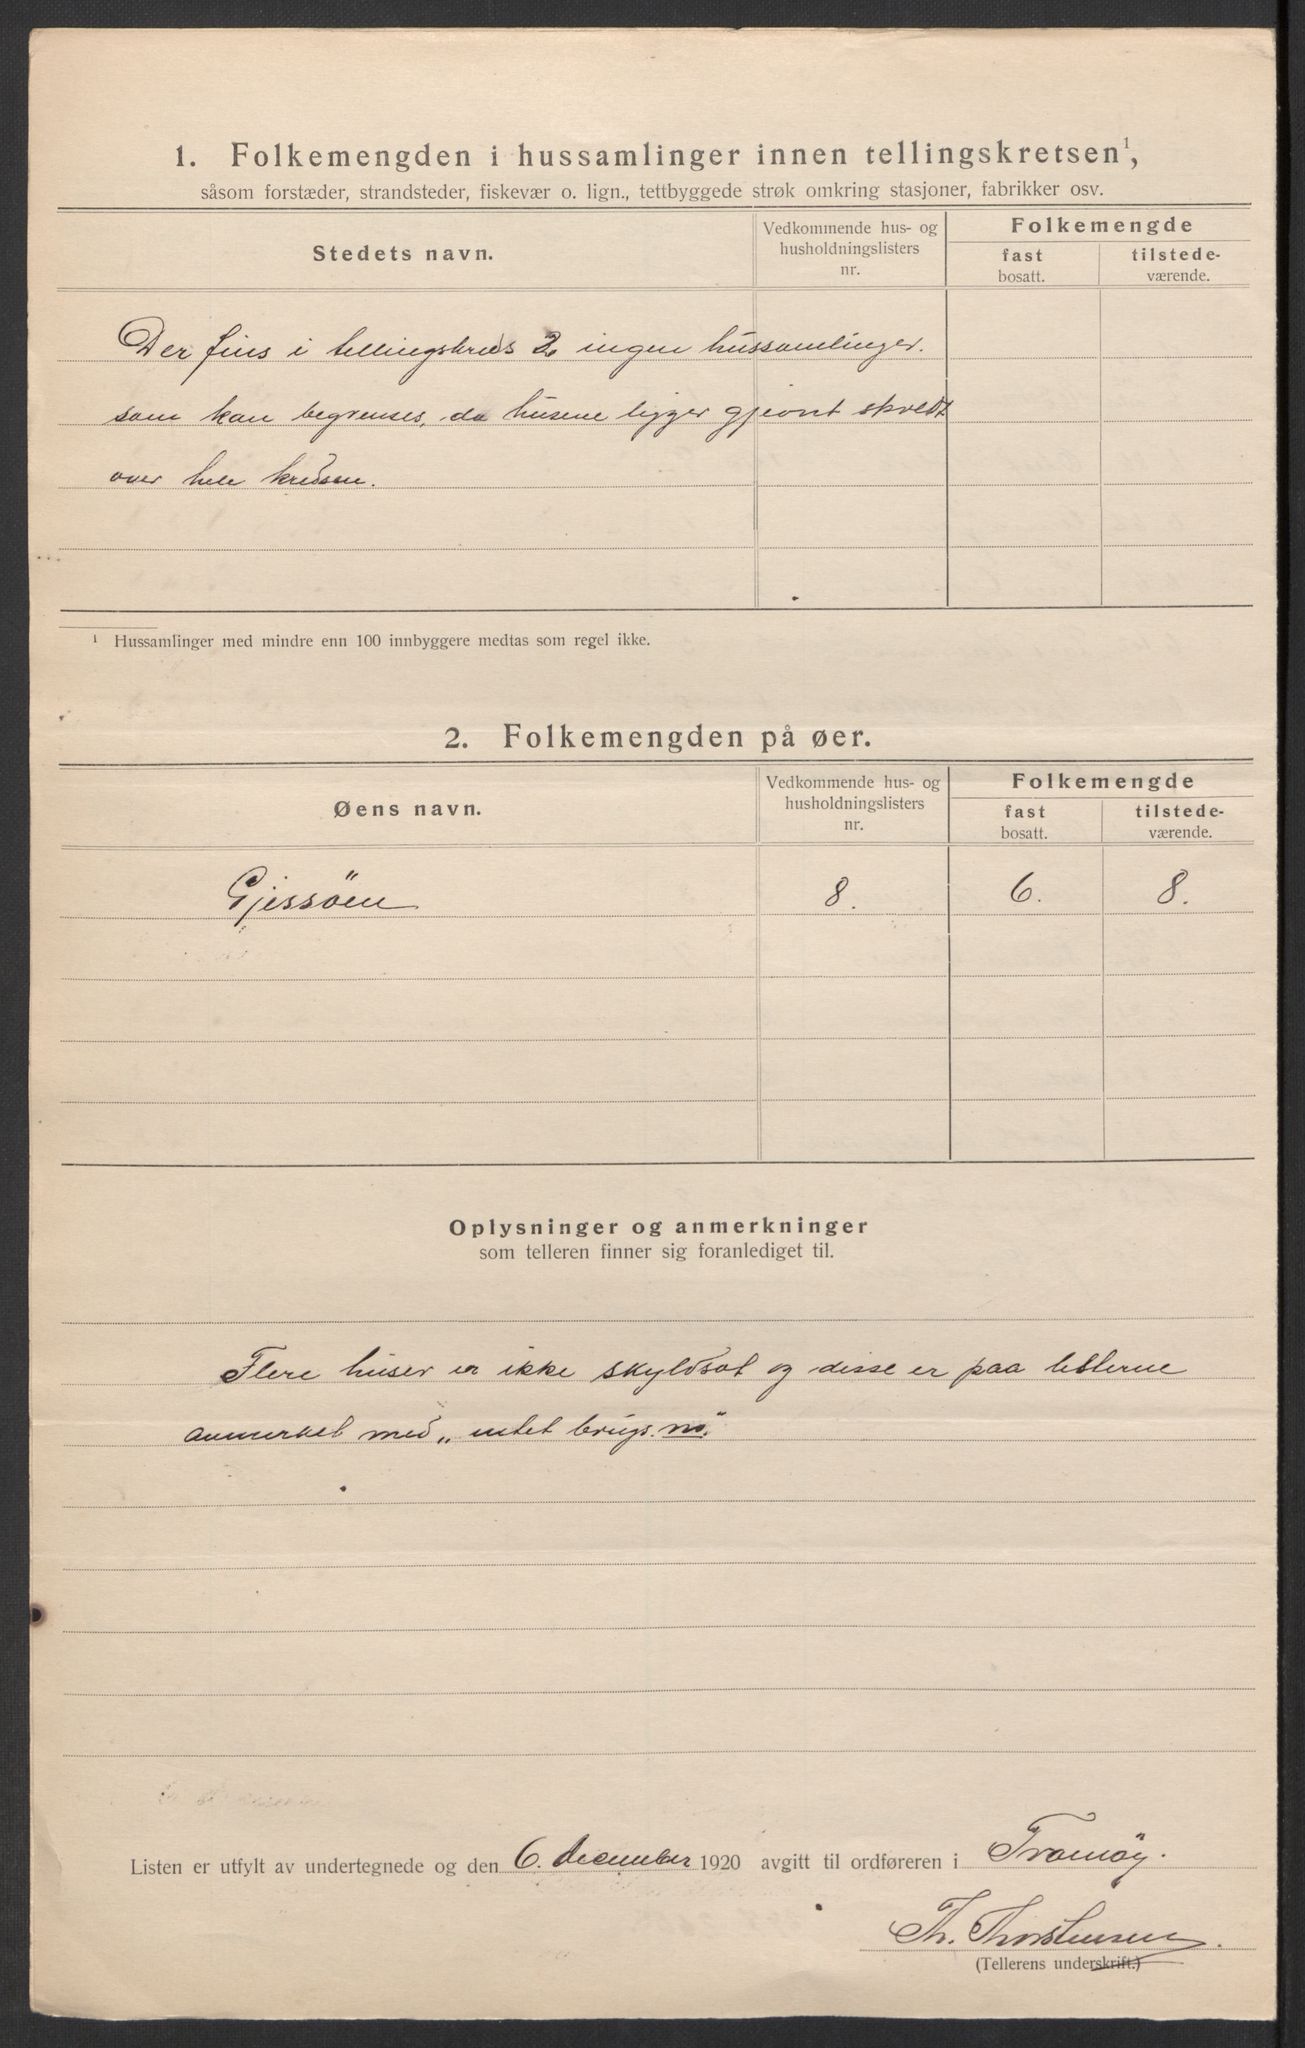 1. Folkemengden i hussamlinger innen tellingskretsen¹,
såsom forstæder, strandsteder, fiskevær o. lign., tettbyggede strøk omkring stasjoner, fabrikker osv.
Stedets navn.
Vedkommende hus- og
husholdningslisters
nr.
Folkemengde
fast
bosatt.
tilstede-
værende.
Der fins i tellingskreds 2 ingen hussamlinger.
som kan begrenses, da husene ligger gjevnt spredt
over hele kredsen.
¹ Hussamlinger med mindre enn 100 innbyggere medtas som regel ikke.
2. Folkemengden på øer.
Øens navn.
Vedkommende hus- og
husholdningslisters
nr.
Folkemengde
fast
bosatt.
tilstede-
værende.
Gjessöen 8. 6. 8.
Oplysninger og anmerkninger
som telleren finner sig foranlediget til.
Flere huser er ikke skyldsat og disse er paa listerne
anmerket med „intet brugs. no."
Listen er utfylt av undertegnede og den 6. december 1920 avgitt til ordføreren i Tromöy.
Th. Thorstensen
(Tellerens underskrift.)